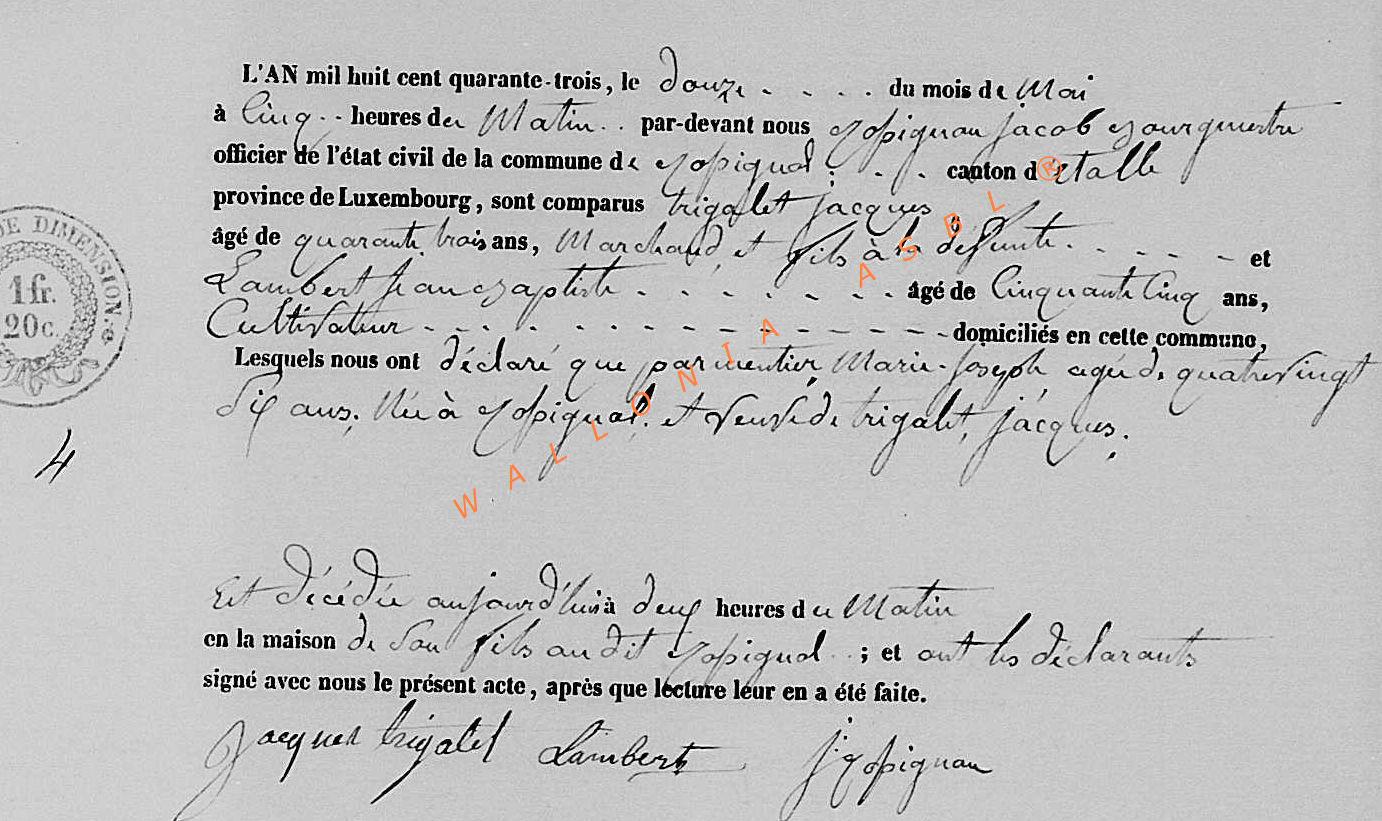 L'AN mil huit cent quarante-trois, le douze - - - - du mois de Mai
à Cinq - - heures du Matin - - par-devant nous Rossignon jacob Bourgmestre
officier de l'état civil de la commune de Rossignol ; - - - canton d'Etalle
province de Luxembourg, sont comparus trigalet jacques
âgé de quarante trois ans, Marchand, et fils à la défunte - - - - - et
Lambert jean Baptiste - - - - - - - - âgé de Cinquante Cinq ans,
Cultivateur - - - - - - - - - - - - - - - domiciliés en cette commune,
Lesquels nous ont déclaré que parmentier Marie-joseph agée de quatre vingt
Dix ans, Née à Rossignol, et Veuve de trigalet, jacques.
Est décédée aujourd'huis à deux heures du Matin
en la maison de Son fils au dit Rossignol - ; et ont les déclarants
signé avec nous le présent acte, après que lecture leur en a été faite.
jacques trigalet Lambert J: Rossignon
DE DIMENSION.
1fr.
20c.
4
WALLONIA ASBL ®